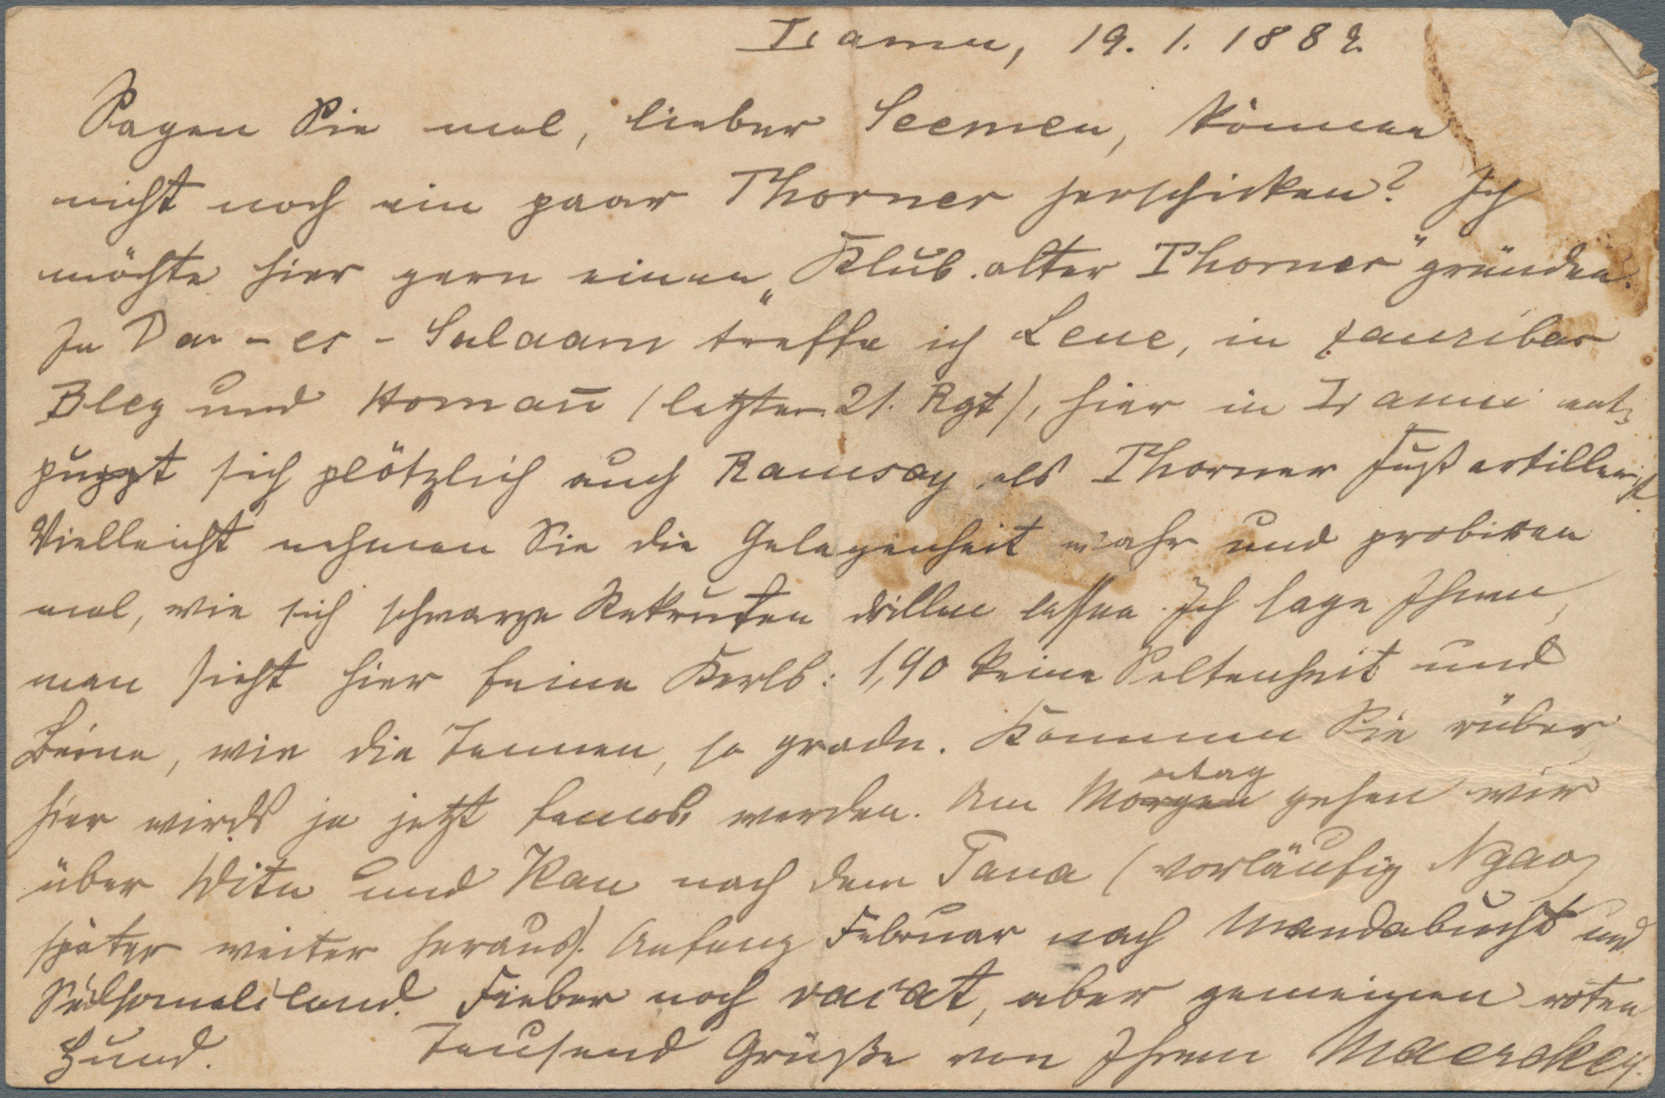 Lamu, 19. 1. 1889.
Sagen Sie mal, lieber Seemen, können
nicht noch ein paar Thorner herschicken? Ich
möchte hier gern einen „Klub alter Thorner" gründen.
In Dar-es-Salaam treffe ich Leue, in Zanzibar
Bley und Homañ (letzter 21. Rgt), hier in Lamu ent-
puppt sich plötzlich auch Ramsay als Thorner Fußartillerist.
Vielleicht nehmen Sie die Gelegenheit wahr und probiren
mal, wie sich schwarze Rekruten drillen lassen. Ich sage Ihnen,
man sieht hier feine Kerls: 1,90 keine Seltenheit und
Beine, wie die Tannen, so grade. Kommen Sie rüber,
hier wirds ja jetzt famos werden. Am Montag gehen wir
über Witu und Kau nach dem Tana (vorläufig Ngao,
später weiter herauf). Anfang Februar nach Mandabucht und
Südsomaliland. Fieber noch vacat, aber gemeinen roten
Hund. Tausend Grüße von Ihrem Maercker.